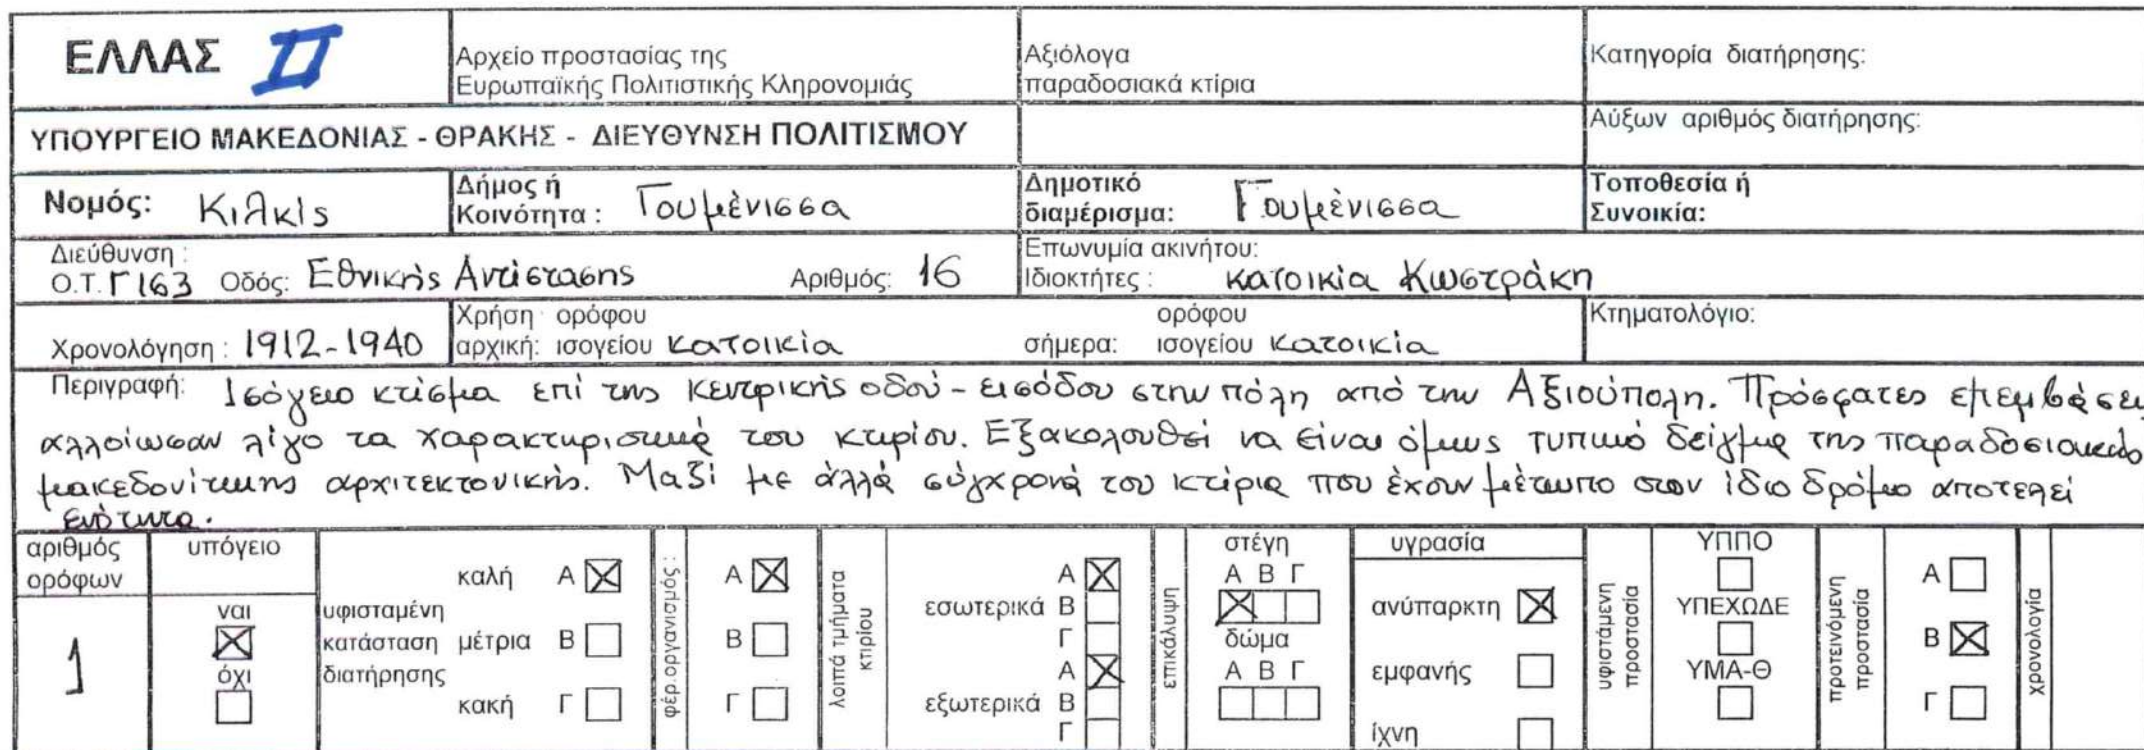 ΕΛΛΑΣ II
Αρχείο προστασίας της
Ευρωπαϊκής Πολιτιστικής Κληρονομιάς
Αξιόλογα
παραδοσιακά κτίρια
Κατηγορία διατήρησης:
ΥΠΟΥΡΓΕΙΟ ΜΑΚΕΔΟΝΙΑΣ - ΘΡΑΚΗΣ - ΔΙΕΥΘΥΝΣΗ ΠΟΛΙΤΙΣΜΟΥ
Αύξων αριθμός διατήρησης:
Νομός: Κιλκίς
Δήμος ή
Κοινότητα : Γουμένισσα
Δημοτικό
διαμέρισμα: Γουμένισσα
Τοποθεσία ή
Συνοικία:
Διεύθυνση :
Ο.Τ. Γ163 Οδός: Εθνικής Αντίστασης Αριθμός: 16
Επωνυμία ακινήτου:
Ιδιοκτήτες : κατοικία Κωστράκη
Χρονολόγηση : 1912-1940
Χρήση ορόφου
αρχική: ισογείου κατοικία
ορόφου
σήμερα: ισογείου κατοικία
Κτηματολόγιο:
Περιγραφή: Ισόγειο κτίσμα επί της κεντρικής οδού - εισόδου στην πόλη από την Αξιούπολη. Πρόσφατες επεμβάσεις
αλλοίωσαν λίγο τα χαρακτηριστικά του κτιρίου. Εξακολουθεί να είναι όμως τυπικό δείγμα της παραδοσιακής
μακεδονίτικης αρχιτεκτονικής. Μαζί με άλλα σύγχρονά του κτίρια που έχουν μέτωπο στον ίδιο δρόμο αποτελεί
ενότητα.
αριθμός
ορόφων
1
υπόγειο
ναι
όχι
υφισταμένη
κατάσταση
διατήρησης
καλή Α
μέτρια Β
κακή Γ
φέρ.οργανισμός :
Α
Β
Γ
λοιπά τμήματα
κτιρίου
εσωτερικά
Α
Β
Γ
εξωτερικά
Α
Β
Γ
επικάλυψη
στέγη
Α Β Γ
δώμα
Α Β Γ
υγρασία
ανύπαρκτη
εμφανής
ίχνη
υφιστάμενη
προστασία
ΥΠΠΟ
ΥΠΕΧΩΔΕ
ΥΜΑ-Θ
προτεινόμενη
προστασία
Α
Β
Γ
χρονολογία